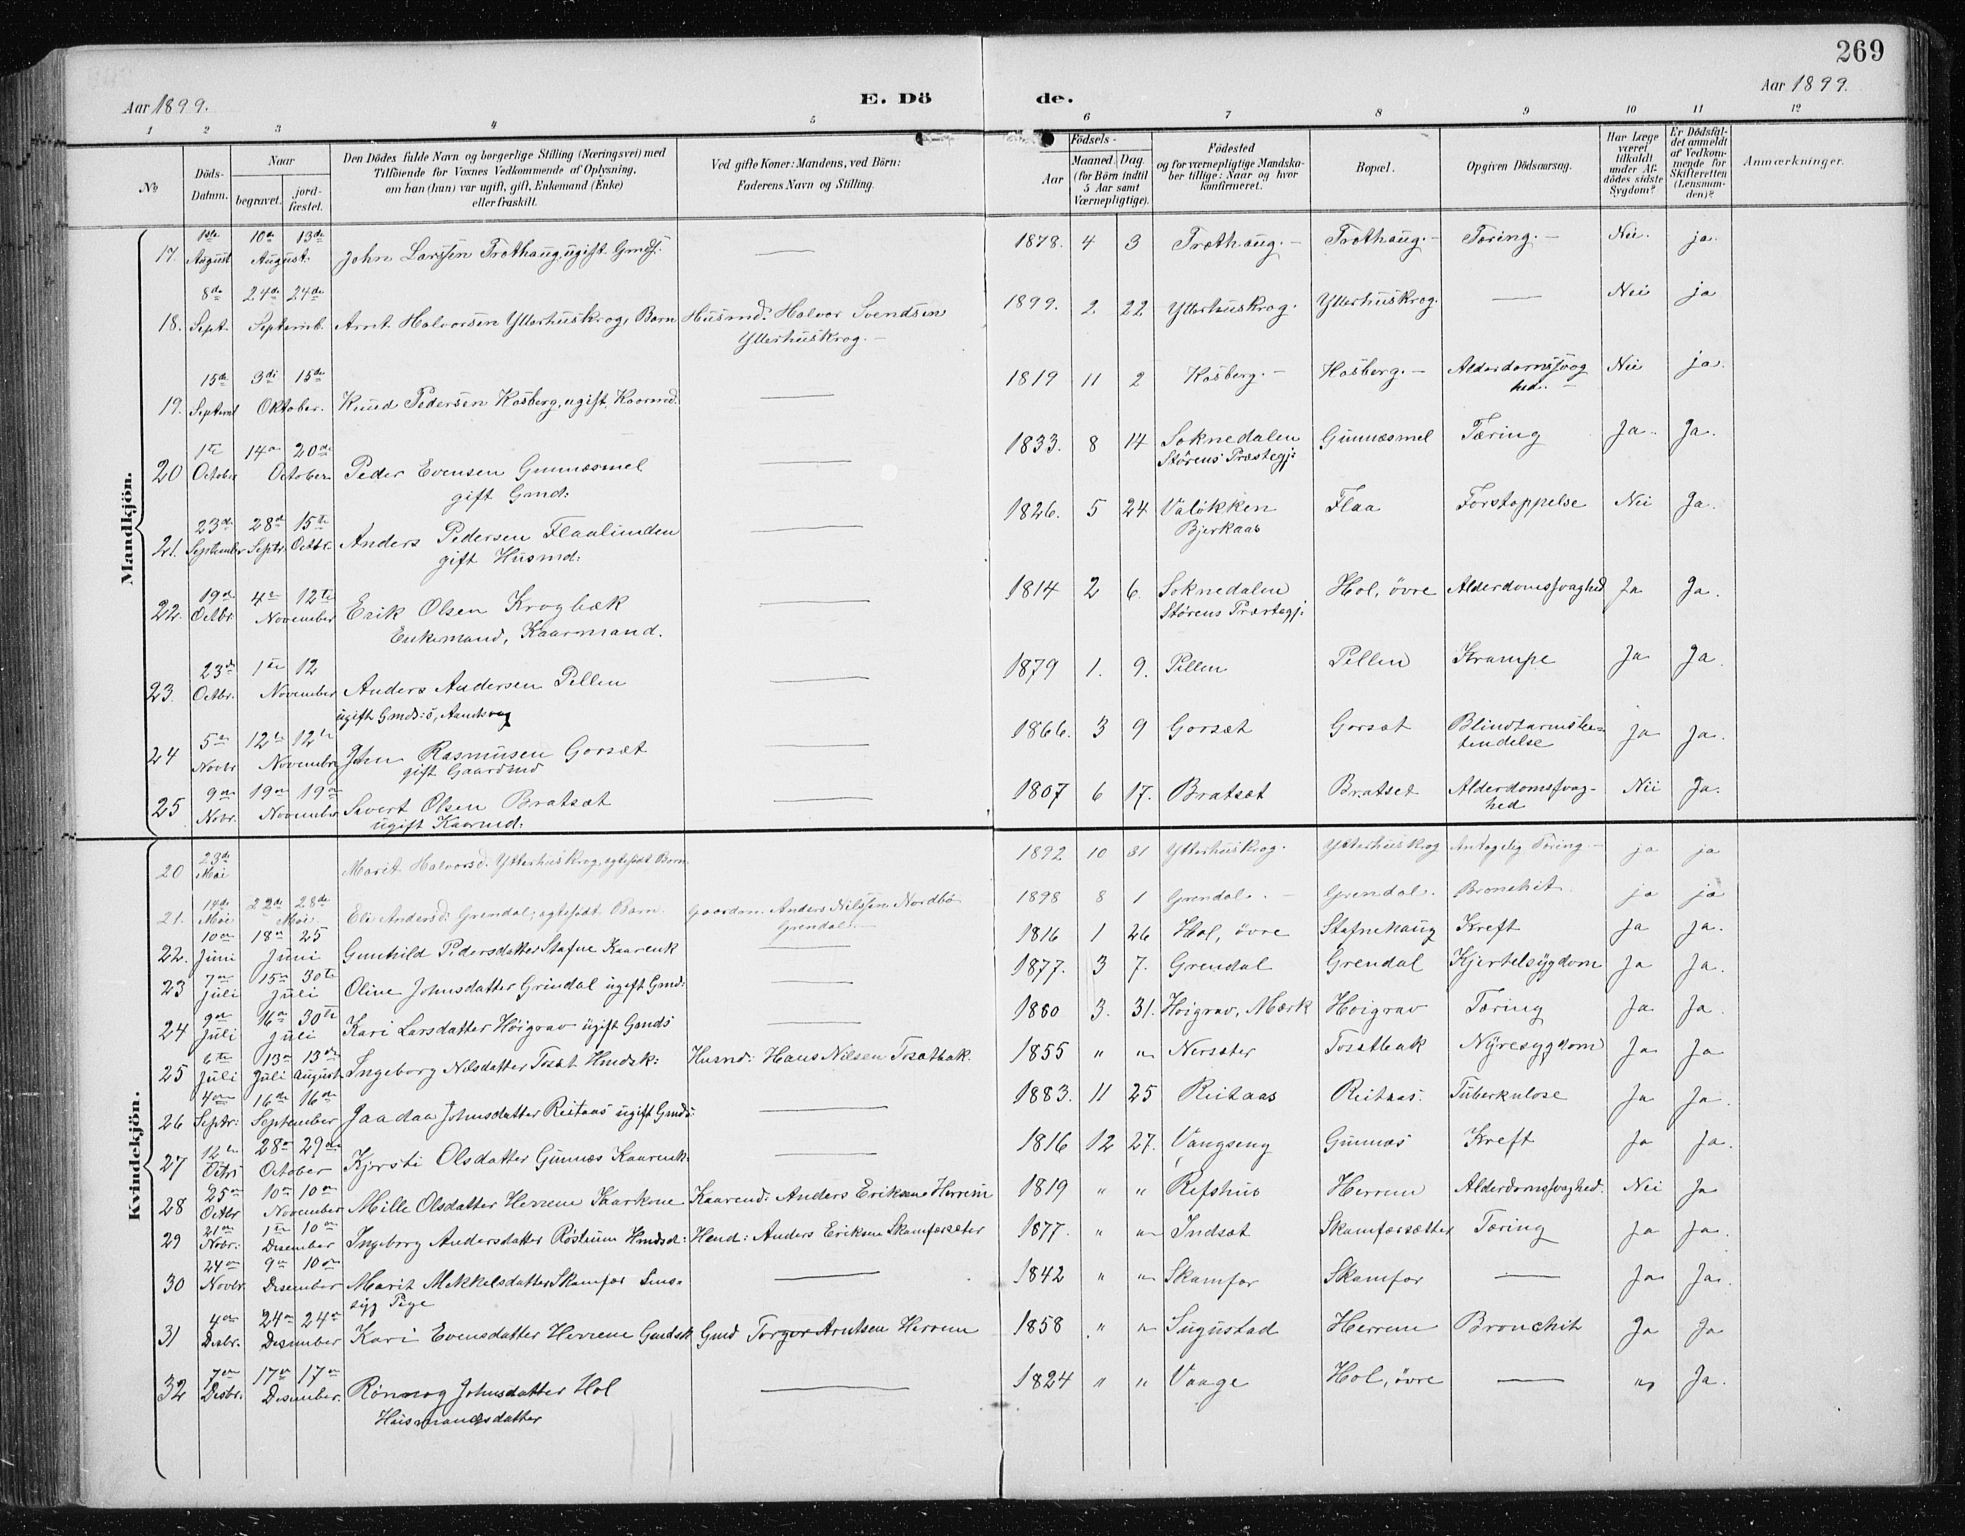 269
Aar 1899. E. Dö de. Aar 1899.
1 2 3 4 5 6 7 8 9 10 11 12
No
Döds-Datum.
Naar
begravet.
jord-fæstet.
Den Dödes fulde Navn og borgerlige Stilling (Næringsvei) med
Tilföiende for Voxnes Vedkommende af Oplysning,
om han (hun) var ugift, gift, Enkemand (Enke)
eller fraskilt.
Ved gifte Koner: Mandens, ved Börn:
Faderens Navn og Stilling.
Födsels-
Aar
Maaned. Dag.
(for Börn indtil
5 Aar samt
Værnepligtige).
Födested
og for værnepligtige Mandska-
ber tillige: Naar og hvor
konfirmeret.
Bopæl.
Opgiven Dödsaarsag.
Har Læge
været
tilkaldt
under Af-
dödes sidste
Sygdom?
Er Dödsfal-
det anmeldt
af Vedkom-
mende for
Skifteretten
(Lensman-
den)?
Anmærkninger.
Mandkjön.
17. 1ste August 10de August 13de John Larssen Trøthaug, ugift Gmds. — 1878. 4 3 Trøthaug.— Trøthaug.— Tæring.— Nei. ja.
18. 8de Sept. 24de Septemb. 24de Arnt Halvorsen Ytterhuskrog, Barn Husmd. Halvor Svendsen Ytterhuskrog.— 1899. 2 22 Ytterhuskrog. Ytterhuskrog. — Nei ja
19. 15de Septemb 3di Oktober. 15de Knud Pedersen Kosberg, ugift Kaarmd. — 1819 11 2 Kosberg.— Kosberg.— Alderdomssvag hed.— Nei ja.
20 1te October 14de October 20de Peder Evensen Gunnæsmel gift Gmd: — 1833. 8 14 Soknedalen Størens Præstegj: Gunnæsmel Tæring Ja. Ja.
21. 23de September 28de Septr. 15te Octbr. Anders Pedersen Flaalunden gift Husmd: — 1826. 5 24 Valökken Bjerkaas Flaa Forstoppelse Nei Ja.
22. 19de Octbr. 4de November 12te Erik Olsen Krogbæk Enkemand, Kaarmand. — 1814 2 6. Soknedalen Størens Præstegj: Hol, övre Alderdomssvaghed Ja Ja.
23. 23de Octbr. 1te November 12 Anders Andersen Pellen ugift Gmds:s, — 1879 1. 9. Pellen Pellen Krampe Ja Ja.
24 5te Novbr 12te November 12te John Rasmusen Gorsæt gift Gaardmd — 1866. 3 9 Gorsæt Gorsæt Blindtarmsbe-tendelse Ja Ja.
25 9de Novbr. 19de November 19de Sivert Olsen Bratsæt ugift Kaarmd: — 1807 6 17. Bratsæt Bratset Alderdomssvag-hed Nei Ja.
Kvindekjön.
20 23de Mai Marit Halvorsd: Ytterhuskrog, egtefødt Barn 1892 10 31 Ytterhuskrog. Ytterhuskrog Antagelig Tæring.— ja ja
21. 14de Mai 22de Mai. 28de Eli Andersd: Grendal; egtefødt Barn. Gaardm. Anders Nilssen Nordbö Grendal.— 1898 8 1 Grendal.— Grendal. Bronchit. ja ja
22. 10de Juni 18de Juni 25 Gunhild Pedersdatter Stafne Kaarenk — 1816 1 26 Hol, övre Stafnehaug Kreft Ja Ja.
23 7de Juli 15de Juli 30te Oline Johnsdatter Grindal ugift Gmd: — 1877. 3 7. Grendal Grendal Kjertelsygdom Ja Ja.
24 9de Juli 16de Juli 30te Kari Larsdatter Höigrav ugift Gmds — 1880 3. 31. Höigrav, Mærk Höigrav Tæring Ja Ja.
25 6te Juli 13de Juli 13de August Ingeborg Nilsdatter Tosæt Hmdsk: Husmd: Hans Nilsen Tosætbak. 1855 " " Nersæter Tosætbak Nyresygdom Ja Ja
26 4de Septr: 16de September 16de Jaadaa Johnsdatter Reitaas ugift Gmds: — 1883. 11 25 Reitaas Reitaas. Tuberkulose Ja Ja.
27 12te Octr 28de October 29de Kjersti Olsdatter Gunnæs Kaarenk: — 1816 12 27. Vangseng Gunnæs Kreft Ja Ja.
28 25de Octbr 10de November 10de Mille Olsdatter Herrem Kaarkone Kaarmd: Anders Eriksen Herrem 1819 " " Refshus Herrem Alderdomssvaghed. Nei Ja
29 21de Novbr: 1te Desember 10de Ingeborg Andersdatter Röstum Hmdsd: Hmd: Anders Eriksen Skamfersæter 1877. " " Indsæt Skamfersætter Tæring Ja Ja.
30 24de Novbr 9de Desember 10de Marit Mekkelsdatter Skamfer Sins-syg Pige — 1842 " " Skamfer Skamfer — Ja Ja.
31 4de Desbr. 24de Desember 24de Kari Evensdatter Herrem Gmdsk Gmd Torger Arntsen Herrem 1858 " " Sugustad Herrem Bronchit Ja Ja
32 7de Desbr. 17de Desember. 17de Rönnog Johnsdatter Hol Husmandsdatter — 1824 " " Vaage Hol, övre — " Ja.